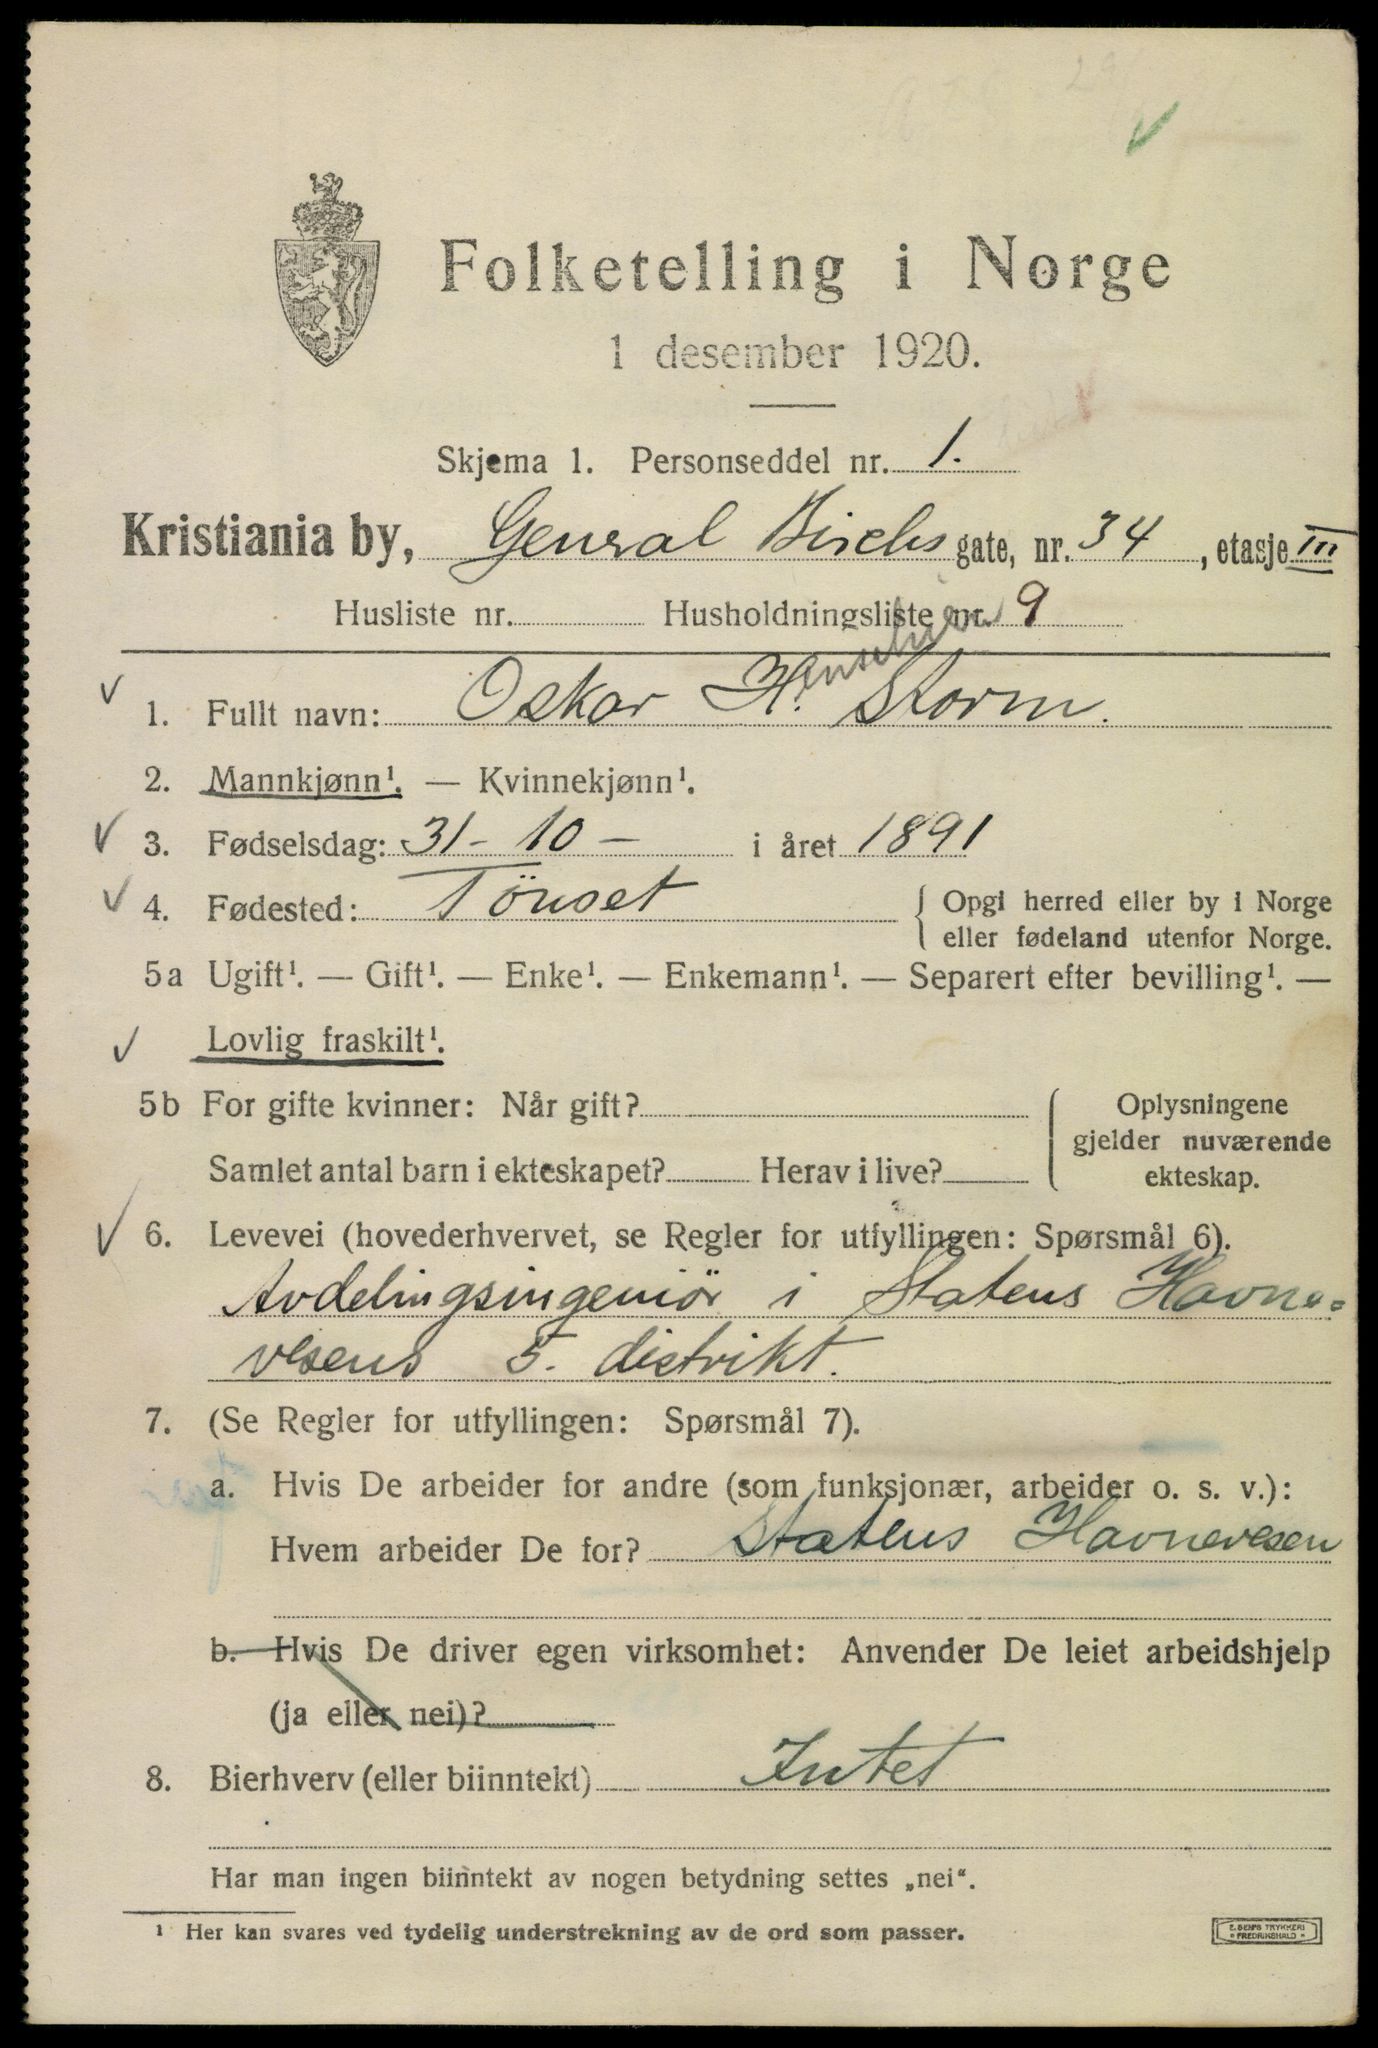 Folketelling i Norge
1 desember 1920.
Skjema 1. Personseddel nr. 1.
Kristiania by, General Birchs gate, nr. 34, etasje III
Husliste nr. Husholdningsliste nr. 9
1. Fullt navn: Oskar H. Storm.
2. Mannkjønn¹. — Kvinnekjønn¹.
3. Fødselsdag: 31-10- i året 1891
4. Fødested: Tönset { Opgi herred eller by i Norge
eller fødeland utenfor Norge.
5a Ugift¹. — Gift¹. — Enke¹. — Enkemann¹. — Separert efter bevilling¹. —
Lovlig fraskilt¹.
5b For gifte kvinner: Når gift? { Oplysningene
gjelder nuværende
Samlet antal barn i ekteskapet? Herav i live? ekteskap.
6. Levevei (hovederhvervet, se Regler for utfyllingen: Spørsmål 6).
Avdelingsingeniör i Statens Havne-
vesens 5. distrikt.
7. (Se Regler for utfyllingen: Spørsmål 7).
a. Hvis De arbeider for andre (som funksjonær, arbeider o. s. v.):
Hvem arbeider De for? Statens Havnevesen
b. Hvis De driver egen virksomhet: Anvender De leiet arbeidshjelp
(ja eller nei)?
8. Bierhverv (eller biinntekt) Intet
Har man ingen biinntekt av nogen betydning settes „nei“.
¹ Her kan svares ved tydelig understrekning av de ord som passer.
E. SEMS TRYKKERI
FREDRIKSHALD